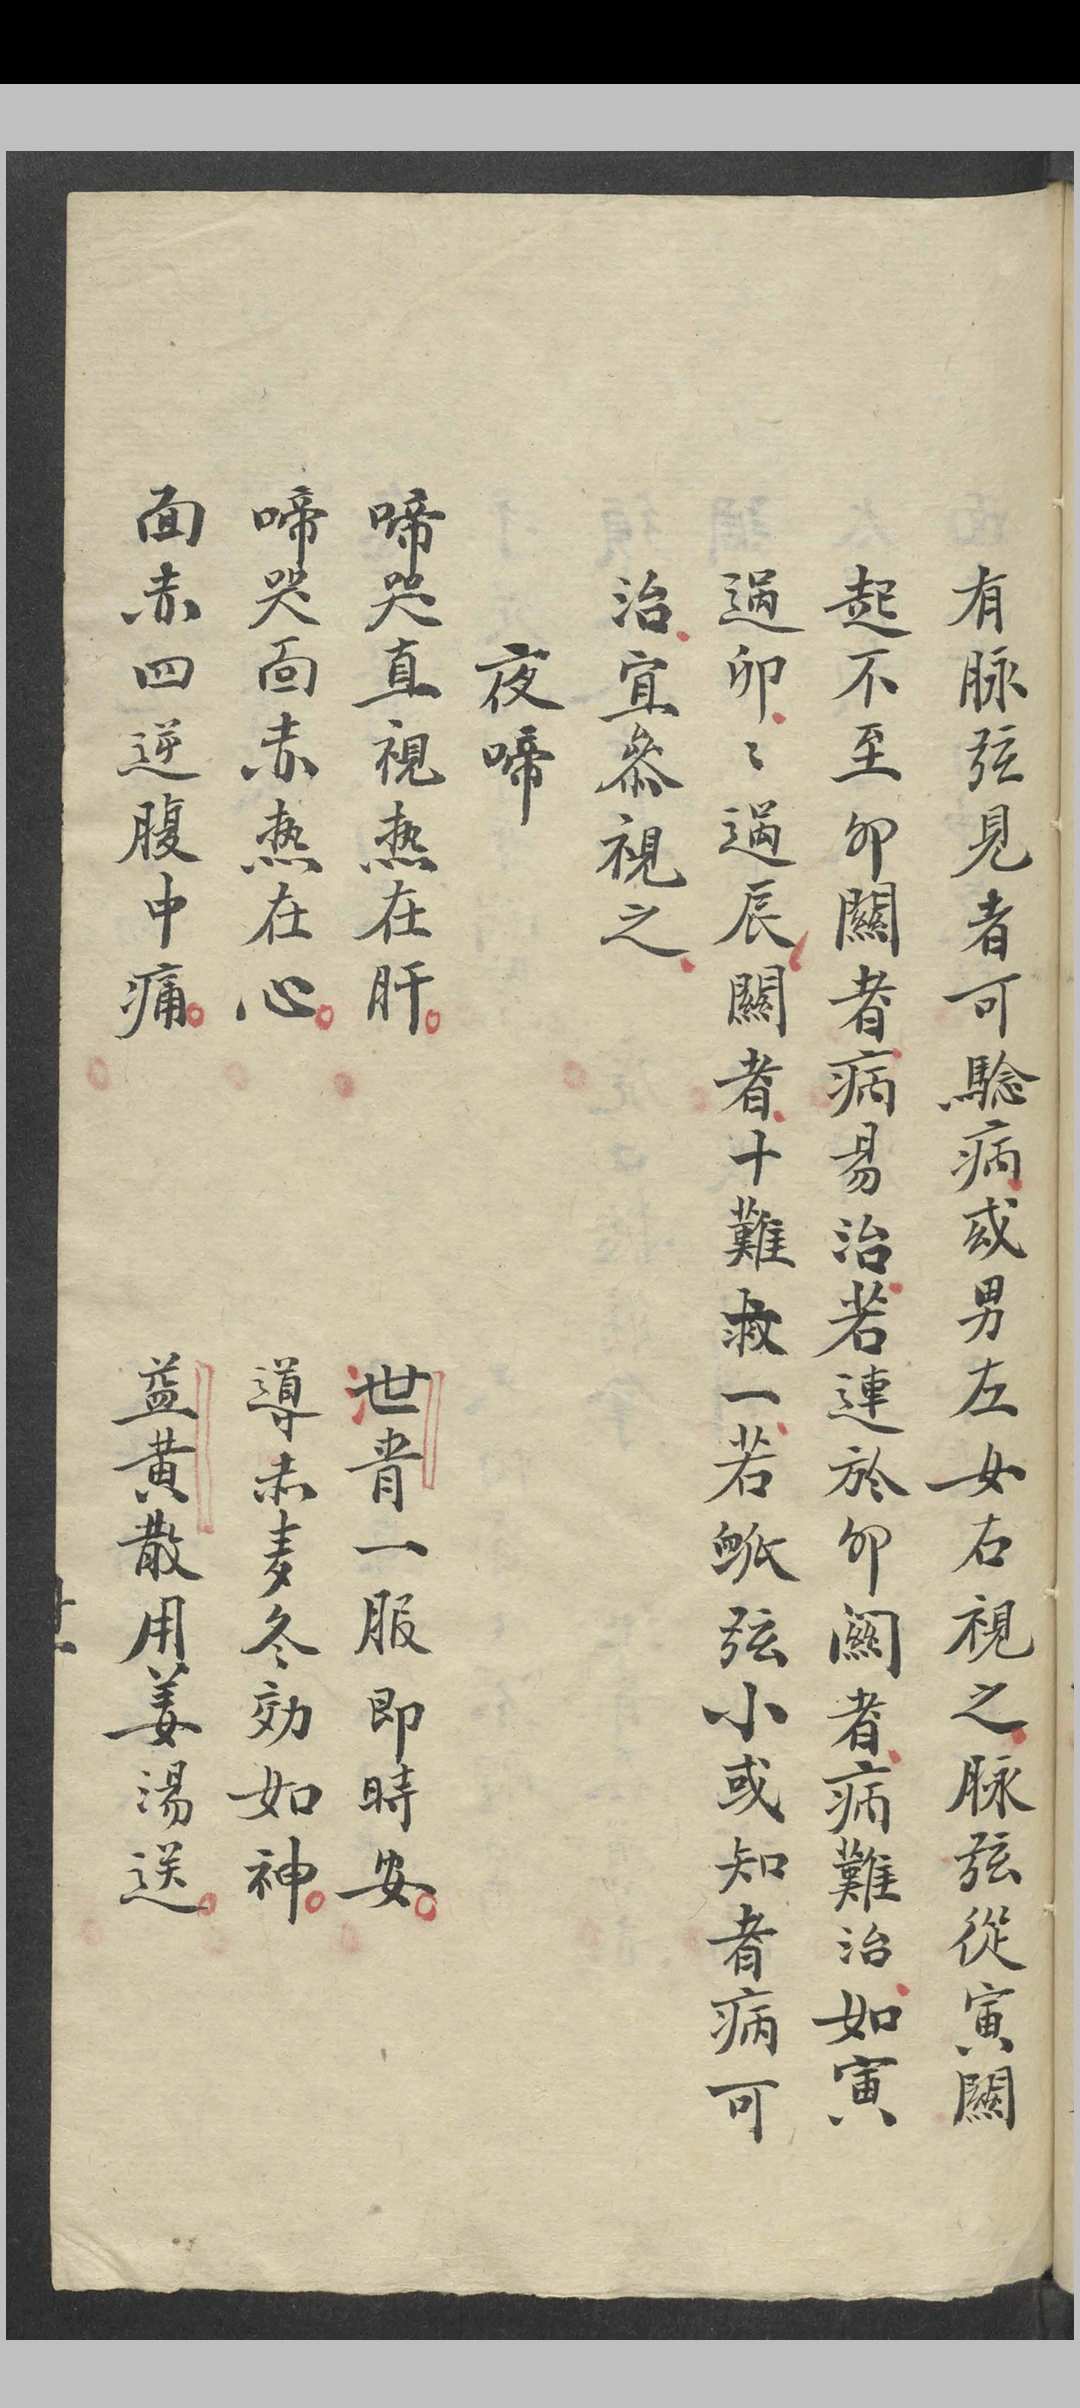 有脉弦見者可驗病或男左女右視之脉弦從寅關
起不至卯關者病易治若連於卯關者病難治如寅
過卯〻過辰關者十難救一若䘑弦小或知者病可
治宜叅視之
夜啼
啼哭直視热在肝
世胥一服即時安
啼哭面赤热在心
導赤麦冬効如神
面赤四逆腹中痛
益黄散用姜湯送